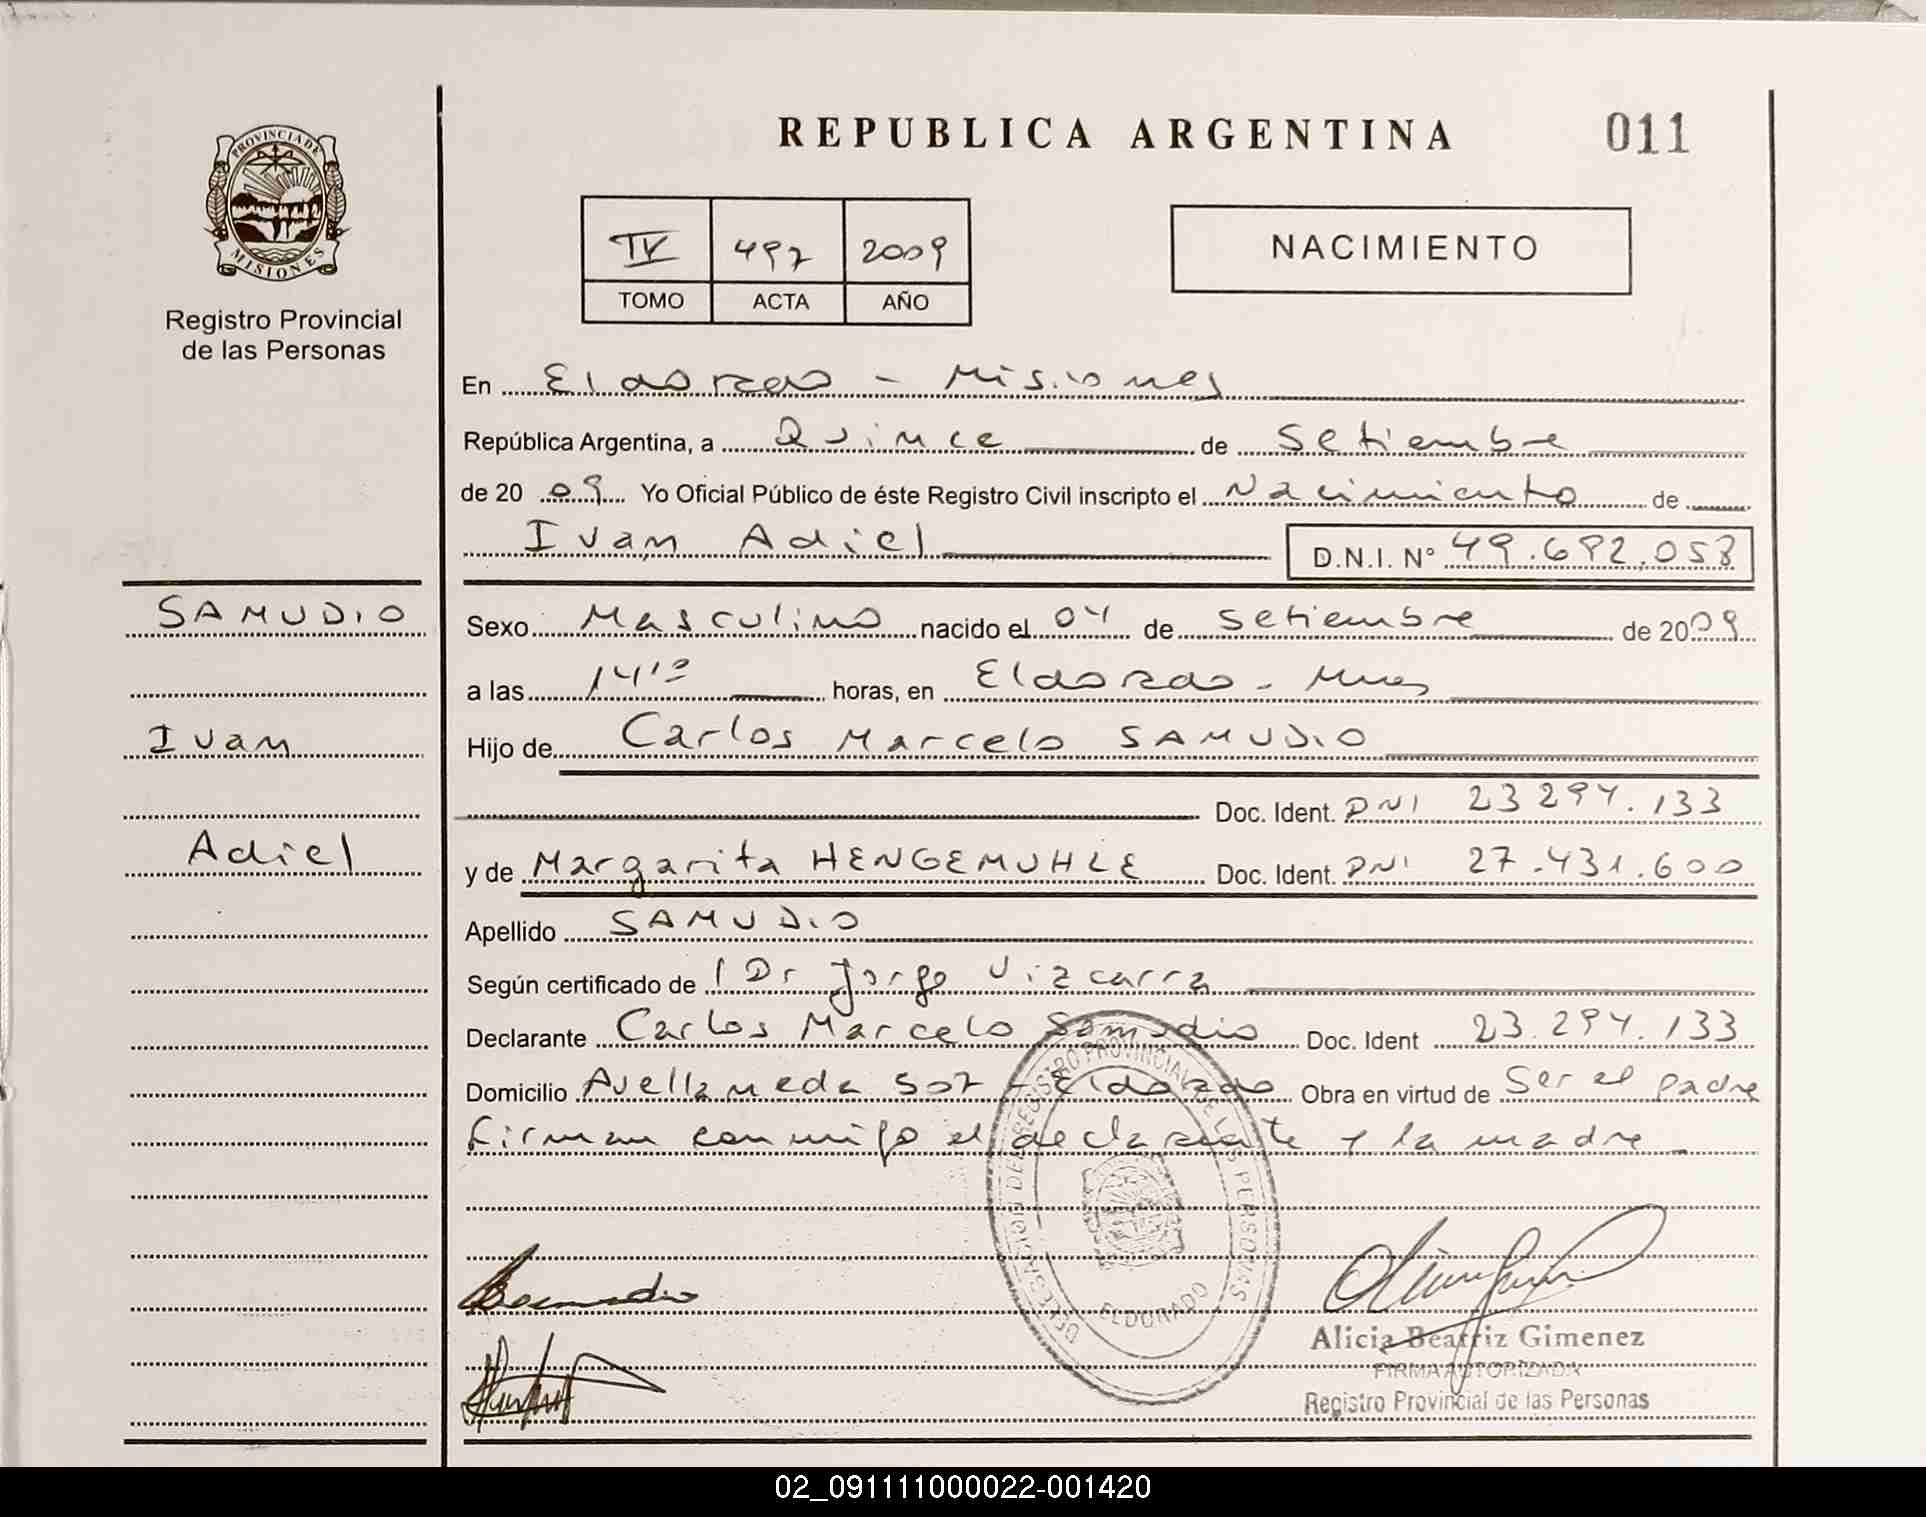 REPUBLICA ARGENTINA
011
PROVINCIA DE
MISIONES
Registro Provincial
de las Personas
IV 497 2009
TOMO ACTA AÑO
NACIMIENTO
En Eldorado - Misiones
República Argentina, a Quince de Setiembre
de 2009 Yo Oficial Público de éste Registro Civil inscripto el Nacimiento de
Ivan Adiel D.N.I. Nº 49.692.053
SAMUDIO
Ivan
Adiel
Sexo Masculino nacido el 04 de Setiembre de 2009
a las horas, en Eldorado - Mnes
Hijo de Carlos Marcelo SAMUDIO
Doc. Ident. DNI 23 294.133
y de Margarita HENGEMUHLE Doc. Ident. DNI 27.431.600
Apellido SAMUDIO
Según certificado de Dr Jorge Vizcarra
Declarante Carlos Marcelo Samudio Doc. Ident 23.294.133
Domicilio Avellaneda 507 - Eldorado Obra en virtud de Ser el padre
firman conmigo el declarante y la madre
DELEGACION DEL REGISTRO PROVINCIAL DE LAS PERSONAS
ELDORADO
Alicia Beatriz Gimenez
FIRMA AUTORIZADA
Registro Provincial de las Personas
02_091111000022-001420